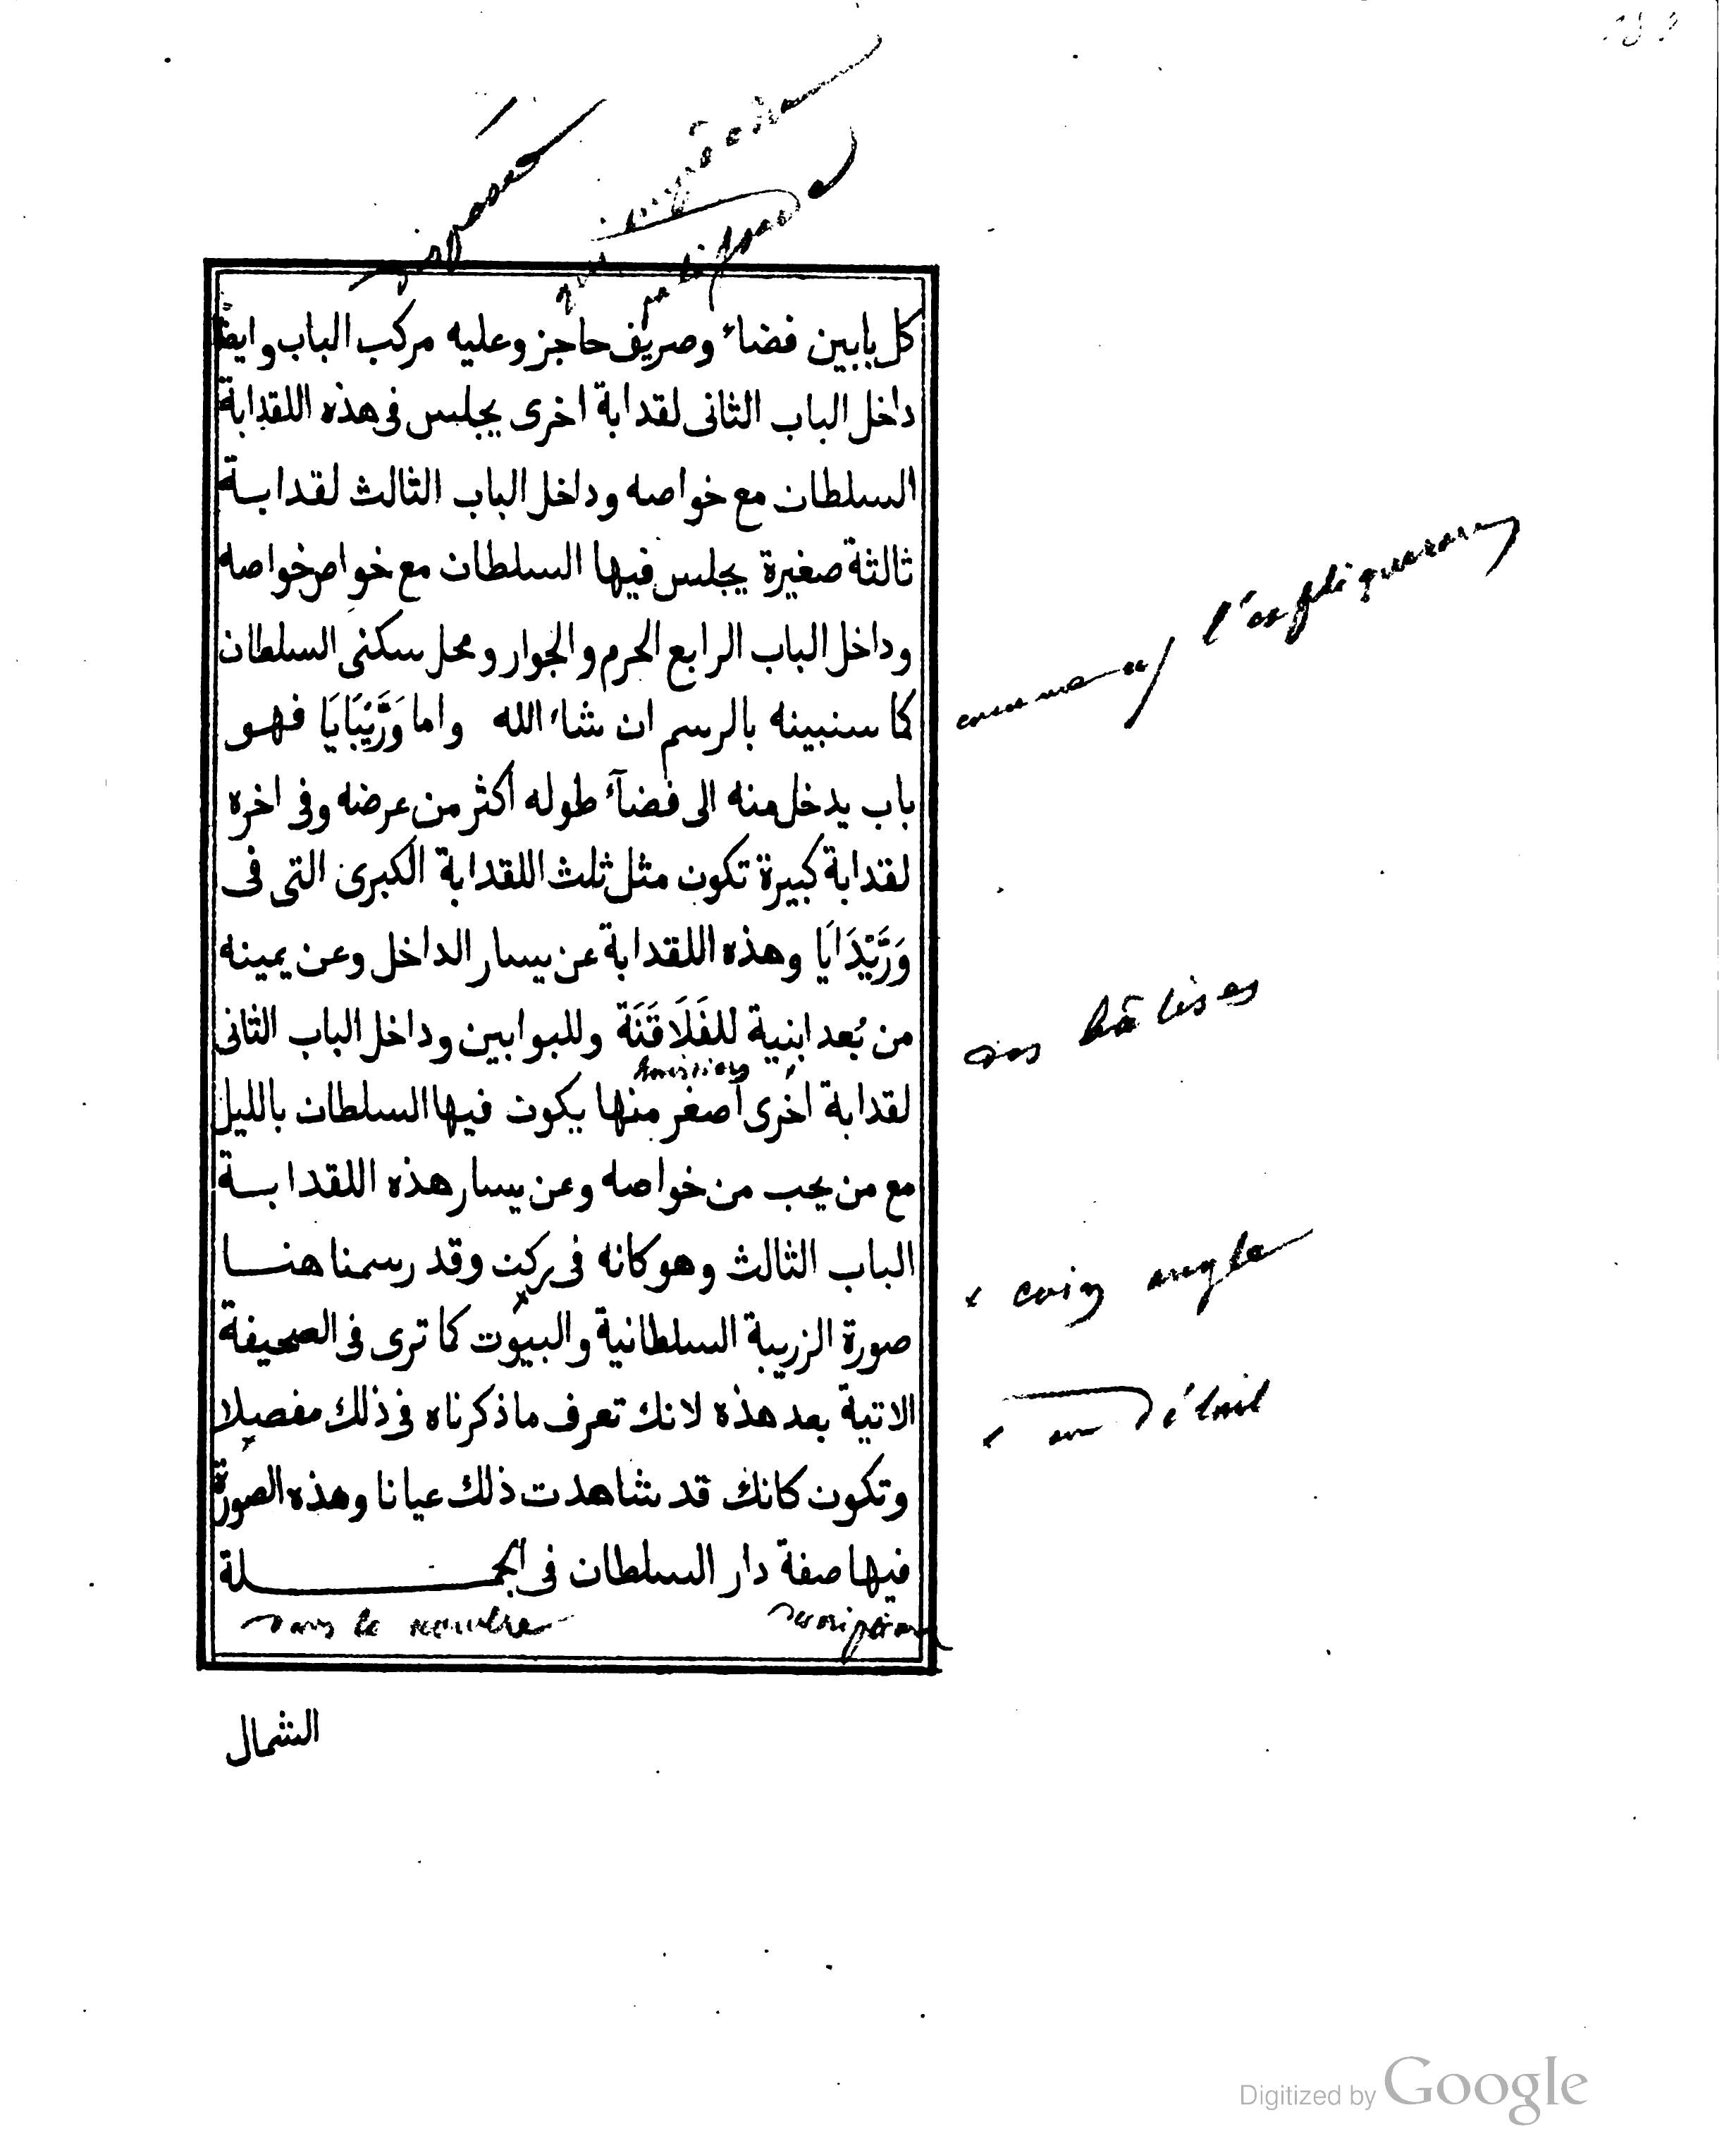 كل بابين فضاء وصريف حاجز وعليه مركب الباب وايضًا
داخل الباب الثانى لقدابة اخرى يجلس فى هذه اللقدابة
السلطان مع خواصه وداخل الباب الثالث لقدابة
ثالثة صغيرة يجلس فيها السلطان مع خواص خواصه
وداخل الباب الرابع الحرم والجوار ومحل سكنى السلطان
كما سنبينه بالرسم ان شاء الله واما وَرَّيْبَايَا فهو
comment l'expliquerons
باب يدخل منه الى فضآء طوله اكثر من عرضه وفى اخره
لقدابة كبيرة تكون مثل ثلث اللقدابة الكبرى التى فى
وَرَّيْدَايَا وهذه اللقدابة عن يسار الداخل وعن يمينه
من بُعد ابنية للفَلَاقَنَة وللبوابين وداخل الباب الثانى
des bâtises
لقدابة اخرى اصغر منها يكون فيها السلطان بالليل
مع من يحب من خواصه وعن يسار هذه اللقدابة
الباب الثالث وهو كانه فى ركن وقد رسمنا هنا
x coin angle
صورة الزريبة السلطانية والبيوت كما ترى فى الصحيفة
الاتية بعد هذه لانك تعرف ما ذكرناه فى ذلك مفصلا
x en détail
وتكون كانك قد شاهدت ذلك عيانا وهذه الصورة
فيها صفة دار السلطان فى الجملة
description
dans le nombre
الشمال
Digitized by Google